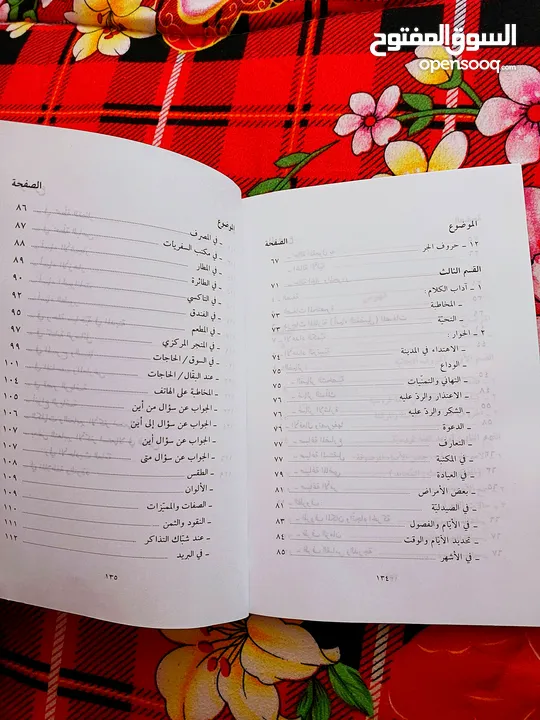 السوق المفتوح
opensooq.com
الموضوع الصفحة
١٢ - حروف الجر ٦٧
القسم الثالث ٧١
١ - آداب الكلام :
- المخاطبة ٧٣
- التحيّة ٧٣
٢ - الحوار :
- الاهتداء في المدينة ٧٤
- الوداع ٧٥
- التهاني والتمنّيات ٧٦
- الاعتذار والردّ عليه ٧٦
- الشكر والردّ عليه ٧٦
- الدعوة ٧٦
- التعارف ٧٧
- في المكتبة ٧٧
- في العيادة ٧٩
- بعض الأمراض ٨١
- في الصيدلية ٨١
- في الأيّام والفصول ٨٣
- تحديد الأيّام والوقت ٨٤
- في الأشهر ٨٥
١٣٤
الموضوع الصفحة
- في المصرف ٨٦
- في مكتب السفريات ٨٧
- في المطار ٨٨
- في الطائرة ٨٩
- في التاكسي ٩٠
- في الفندق ٩٢
- في المطعم ٩٣
- في المتجر المركزي ٩٥
- في السوق / الحاجات ٩٧
- عند البقّال / الحاجات ٩٩
- المخاطبة على الهاتف ١٠١
- الجواب عن سؤال من أين ١٠٤
- الجواب عن سؤال إلى أين ١٠٦
- الجواب عن سؤال أين ١٠٧
- الجواب عن سؤال متى ١٠٧
- الطقس ١٠٧
- الألوان ١٠٨
- الصفات والمميّزات ١٠٩
- النقود والثمن ١١٠
- عند شبّاك التذاكر ١١١
- في البريد ١١٢
١٣٥